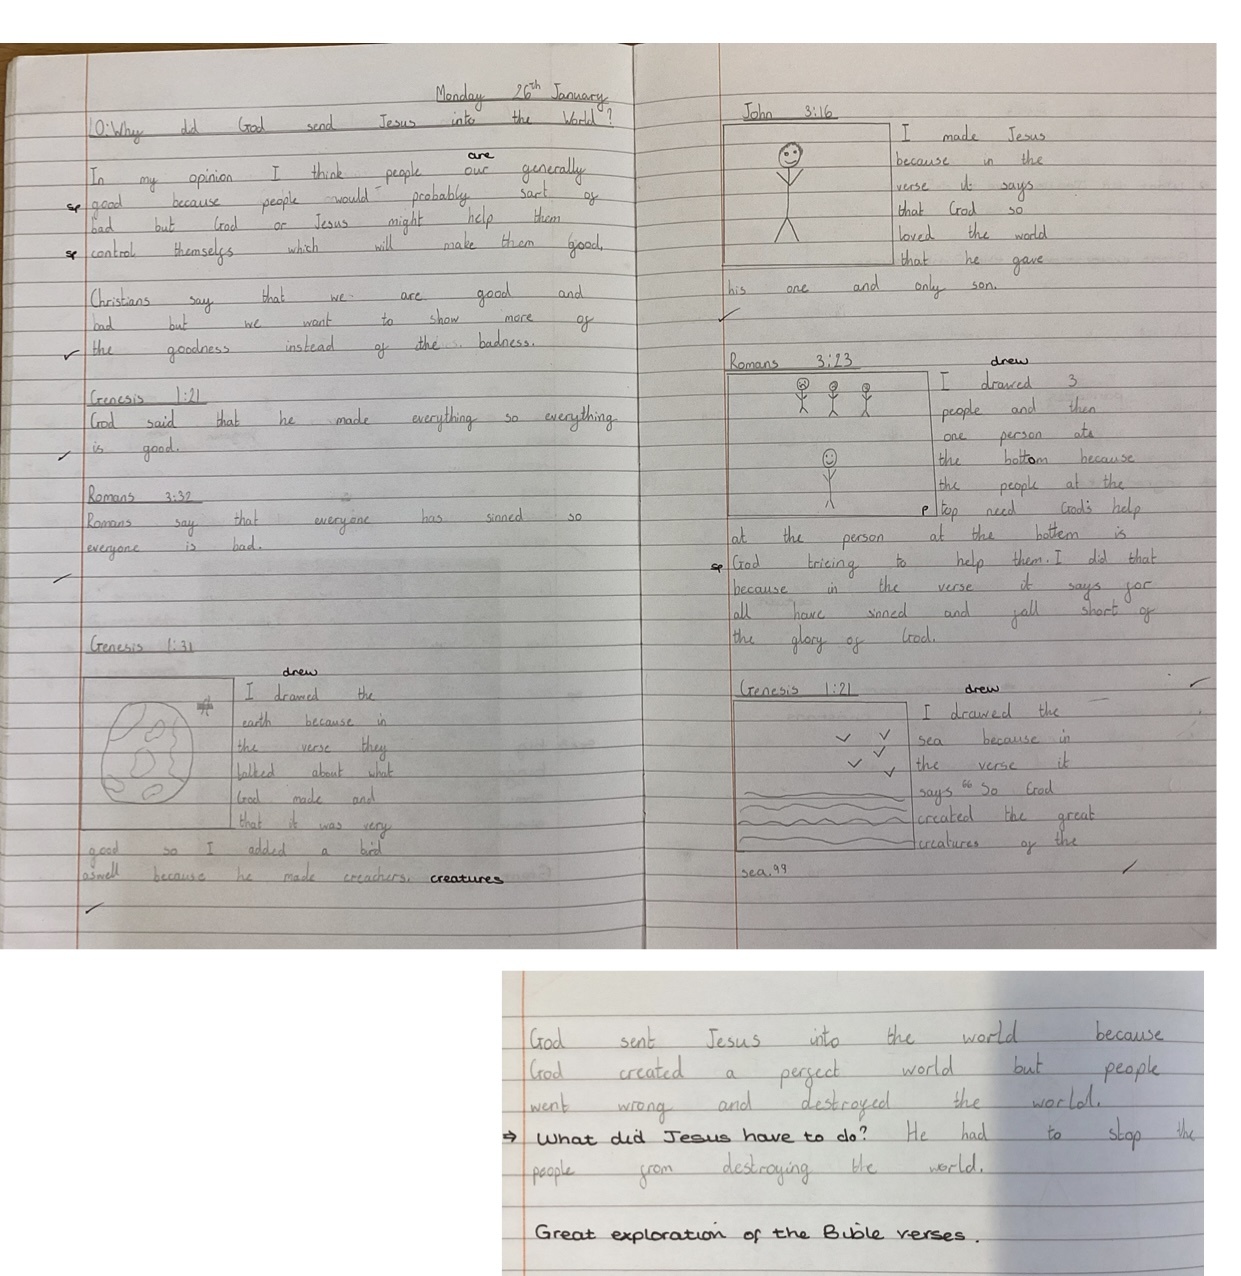 Monday 26th January
LO: Why did God send Jesus into the World?
are
In my opinion I think people our generally
sp good because people would probably sort of
bad but God or Jesus might help them
sp control themselfs which will make them good.
Christians say that we are good and
bad but we want to show more of
the goodness instead of the badness.
Genesis 1:21
God said that he made everything so everything
is good.
Romans 3:32
Romans say that everyone has sinned so
everyone is bad.
Genesis 1:31
drew
I drawed the
earth because in
the verse they
talked about what
God made and
that it was very
good so I added a bird
aswell because he made creachers. creatures
John 3:16
I made Jesus
because in the
verse it says
that God so
loved the world
that he gave
his one and only son.
Romans 3:23
drew
I drawed 3
people and then
one person ats
the bottom because
the people at the
P top need God's help
at the person at the bottem is
sp God tricing to help them. I did that
because in the verse it says for
all have sinned and fall short of
the glory of God.
Genesis 1:21
drew
I drawed the
sea because in
the verse it
says "So God
created the great
creatures of the
sea."
God sent Jesus into the world because
God created a perfect world but people
went wrong and destroyed the world.
⇒ What did Jesus have to do? He had to stop the
people from destroying the world.
Great exploration of the Bible verses.